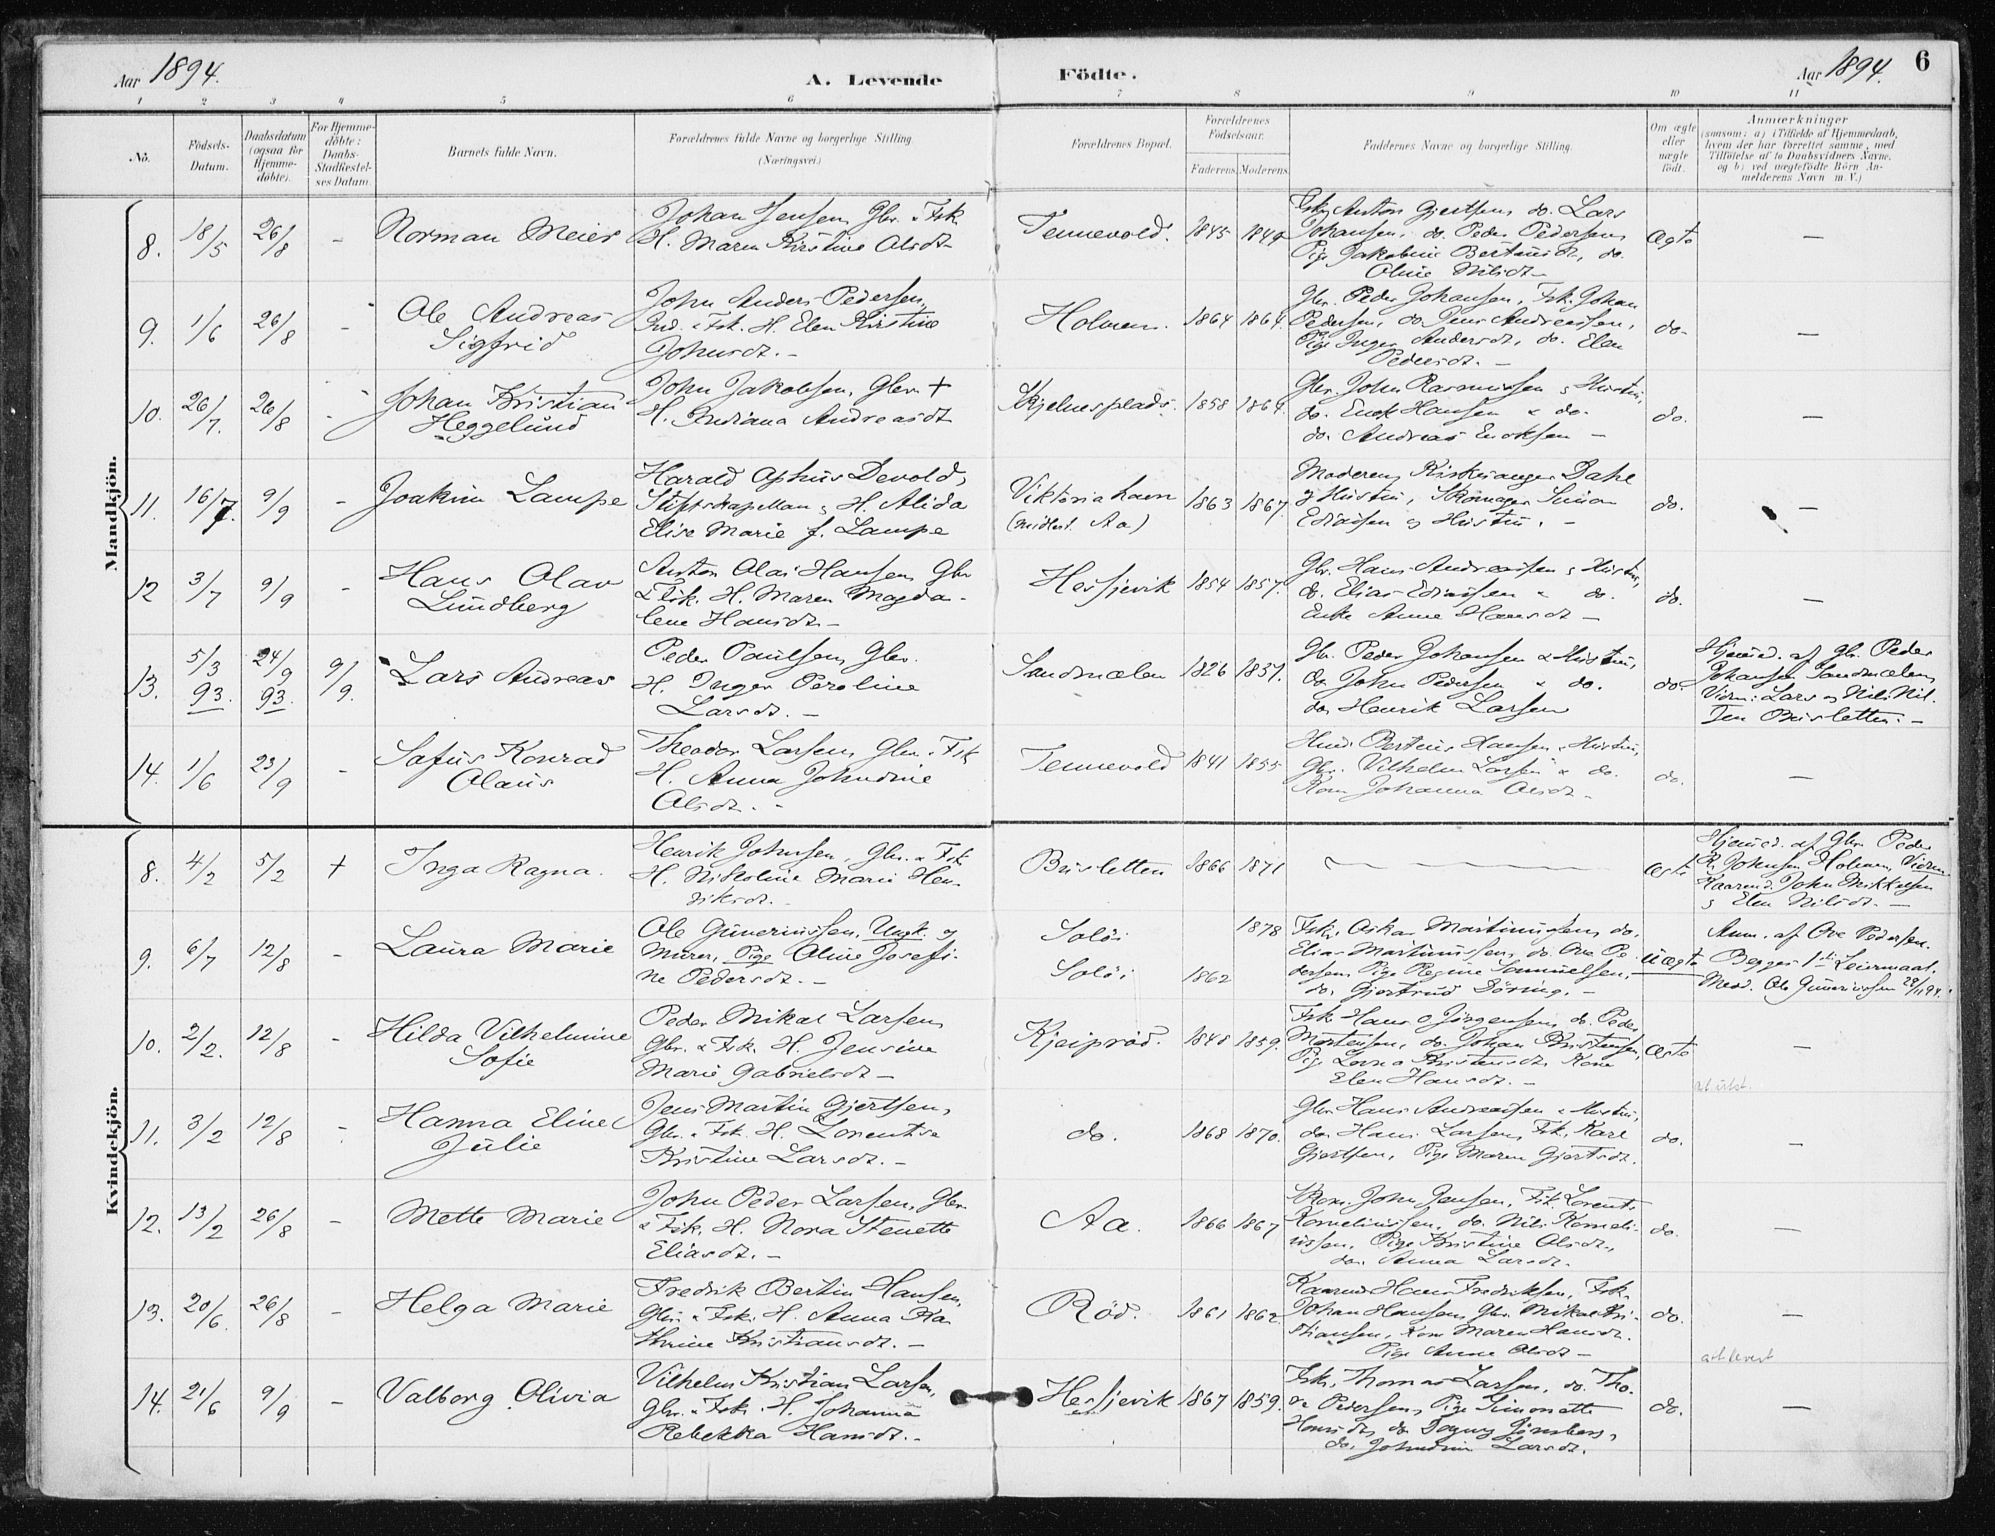 Aar 1894.
A. Levende
Födte.
Aar 1894.
6
1 2 3 4 5 6 7 8 9 10 11
No.
Födsels-Datum.
Daabsdatum (ogsaa for Hjemme-döbte).
For Hjemme-döbte: Daabs-Stadfæstel-ses Datum
Barnets fulde Navn.
Forældrenes fulde Navne og borgerlige Stilling (Næringsvei.)
Forældrenes Bopæl.
Forældrenes Födselsaar.
Faderens. Moderens.
Faddernes Navne og borgerlige Stilling.
Om ægte eller uægte födt.
Anmærkninger
(saasom: a) i Tilfælde af Hjemmedaab, hvem der har forrettet samme, med Tilföielse af to Daabsvidners Navne, og b) ved uægtefödte Börn An-melderens Navn m. V.)
Mandkjön.
8. 18/5 26/8 - Norman Meier
Johan Jensen, Gbr. & Fsk.
H. Maren Kirstine Olsdt.
Tennevold. 1845 1849
Fsk. Anton Gjertsen, do. Lars
Johansen, do. Peder Pedersen,
Pige Jakobine Berteusdt., do.
Oline Nilsdt. -
Ægte -
9. 1/6 26/8 - Ole Andreas
Sigfrid
John Anders Pedersen,
Ind. & Fsk. H. Elen Kirstine
Johnsdt. -
Holmen. 1864 1864.
Gbr. Peder Johansen, Fsk. Johan
Pedersen, do. Jens Andreassen,
Pige Inger Andersdt., do. Elen
Pedersdt. -
do. -
10. 26/7. 26/8 - Johan Kristian
Heggelund
John Jakobsen, Gbr. +
H. Indiana Andreasdt.
Kjelnesplads. 1858 1864.
Gbr. John Rasmussen & Hustru,
do. Enok Hansen & do.
do. Andreas Enoksen -
do. -
11. 16/7. 9/9 - Joakim Lampe
Harald Ophus Devold,
Stiftskapellan & H. Alida
Elise Marie f. Lampe
Viktoriahavn
(midlert. Aa)
1863 1867.
Moderen, Kirkesanger Dahl
& Hustru, Skomager Simon
Eliassen og Hustru. -
do. -
12 3/7 9/9 - Hans Olav
Lundberg
Anton Olai Hansen, Gbr
& Fsk. H. Maren Magda-
lene Hansdt. -
Hessjevik 1854 1857.
Gbr. Hans Andreassen & Hustru,
do. Elias Eliassen & do.
Enke Anne Hansdt -
do. -
13. 5/3 93. 24/9 93. 9/9. Lars Andreas
Peder Paulsen, Gbr.
H. Inger Peroline
Larsdt. -
Sandmælen 1826 1857.
Gbr. Peder Johansen & Hustru,
do. John Pedersen & do.
do. Henrik Larsen
do.
Hjemmed. af Gbr. Peder
Johansen Sandmælen,
Vidn: Lars og Nils Nil-
sen Brusletten. -
14. 1/6 23/9 - Sofus Konrad
Olaus
Theodor Larsen, Gbr. & Fsk
H. Anna Johndine
Olsdt. -
Tennevold 1841 1855
Hmd. Berteus Hansen & Hustru,
Gbr. Vilhelm Larsen & do.
Kone Johanna Olsdt. -
do. -
Kvindekjön.
8. 4/2 5/2 + Inga Ragna.
Henrik Johnsen, Gbr. & Fsk.
H. Nikoline Marie Hen-
riksdt. -
Brusletten 1866 1871
Ægte
Hjemmed. af Gbr. Peder
Johnsen Holmen, Vidn:
Kaarmd. John Mikkelsen
& Elen Nilsdt. -
9. 6/7 12/8 - Laura Marie
Ole Guneriussen, Ungk. og
Murer, Pige Oline Josefi-
ne Pedersdt. -
Soløi
Soløi
1862 1878
Fsk. Oskar Martinussen, do.
Elias Martinussen, do. Ove Pe-
dersen, Pige Regine Samuelsen,
do. Gjertrud Döring. -
Uægte
Anm. af Ove Pedersen.
Begges 1ste Leiermaal.
Medd. Ole Guneriussen 29/11 94.
10. 2/2. 12/8 - Hilda Vilhelmine
Sofie
Peder Mikal Larsen,
Gbr. & Fsk. H. Jensine
Marie Gabrielsdt -
Kjeiprød. 1848 1859.
Fsk. Hans O Jörgensen, do. Peder
Mortensen, do. Johan Kristensen,
Pige Lovna Kristensdt, Kone
Elen Hansdt. -
Ægte -
11. 3/2 12/8 - Hanna Eline
Julie
Jens Martin Gjertsen,
Gbr. & Fsk. H. Lorentse
Kristine Larsdt. -
do. 1868 1870.
Gbr. Hans Andreassen & Hustru,
do. Hans Larsen, Fsk. Karl
Gjertsen, Pige Maren Gjertsdt.
do. -
12. 13/2 26/8 - Mette Marie
John Peder Larsen, Gbr
& Fsk. H. Nora Stenette
Eliasdt. -
Aa. 1866 1867
Skom. John Jensen, Fsk. Lorents
Korneliussen, do. Nils Korneli-
ussen, Pige Kristine Olsdt.,
do. Anna Larsdt.
do. -
13. 20/6. 26/8 - Helga Marie
Fredrik Bertin Hansen,
Gbr. & Fsk. H. Anna Ka-
thrine Kristiansdt. -
Röd. 1861 1862
Kaarmd. Hans Fredriksen, Fsk.
Johan Hansen, Gbr. Mikal Kri-
stiansen, Kone Maren Hansdt.
Pige Anne Olsdt -
do. -
14. 21/6 9/9 - Valborg Olivia
Vilhelm Kristian Larsen,
Gbr. & Fsk. H. Johanna
Rebekka Hansdt. -
Hessjevik 1867 1859.
Fsk. Thomas Larsen, do. Tho-
re Pedersen, Pige Simonette
Hansdt, do. Dagny Jönsberg,
do. Johndine Larsdt.
do. -